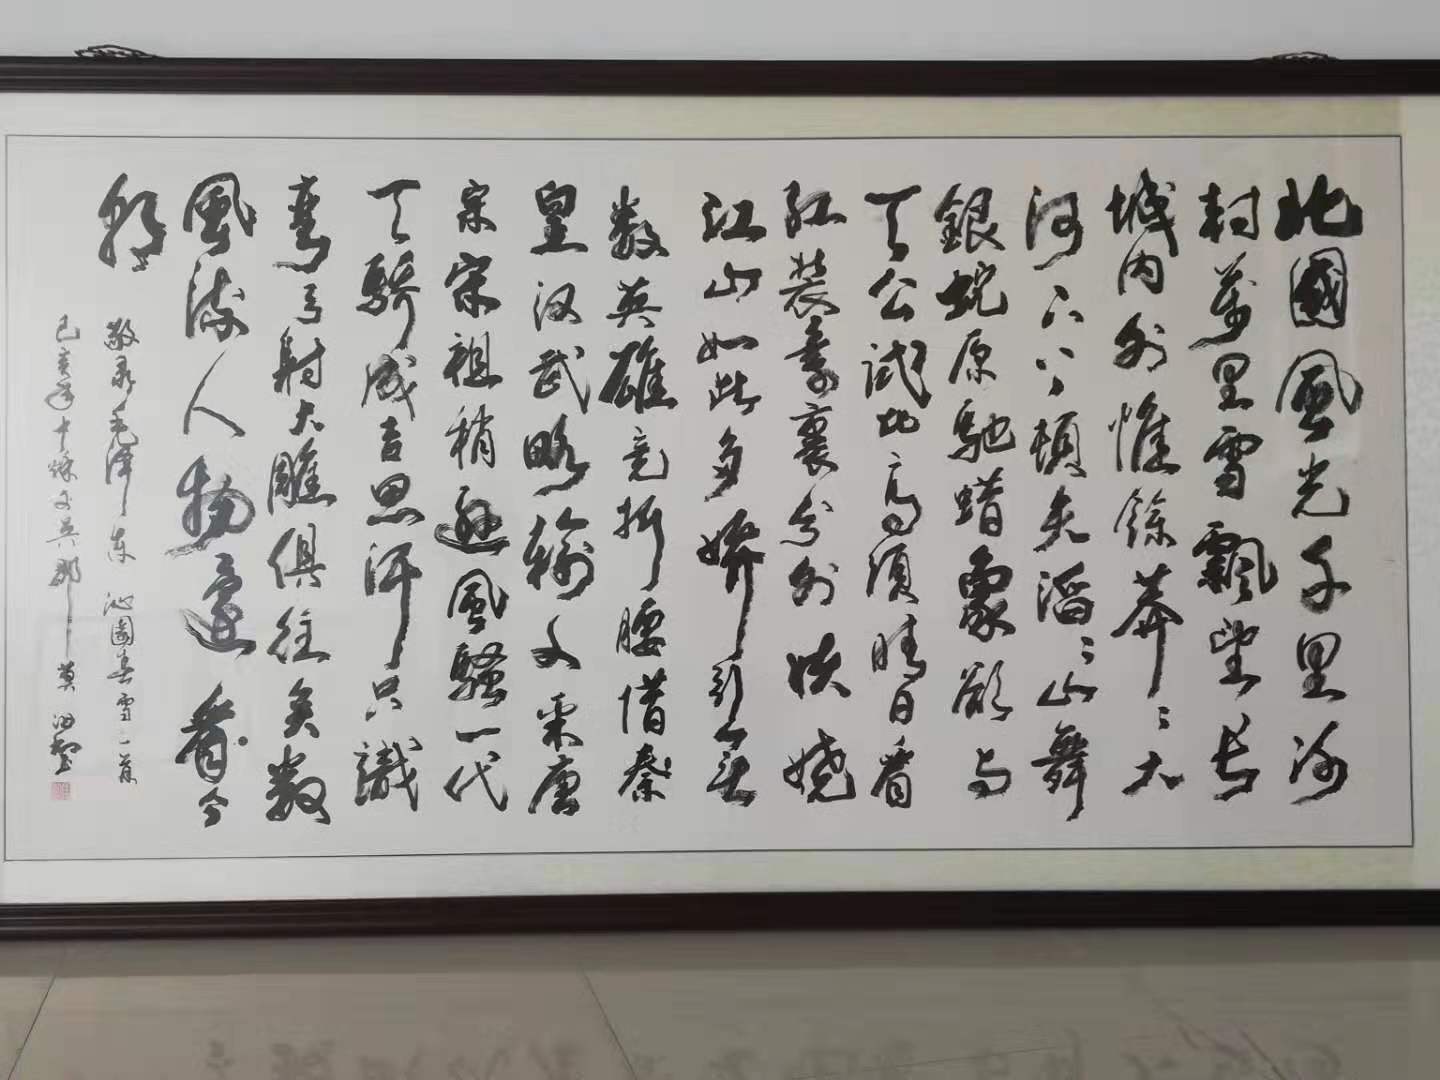 北國風光千里冰
封萬里雪飄望長
城内外惟餘莽〻大
河上下頓失滔〻山舞
銀蛇原馳蜡象欲与
天公試比高須晴日看
红装素裹分外妖嬈
江山如此多嬌引無
数英雄竞折腰惜秦
皇汉武略输文采唐
宗宋祖稍遜風騷一代
天骄成吉思汗只識
彎弓射大雕俱往矣数
風流人物還看今
朝
敬录毛澤东 沁園春雪一首
己亥年